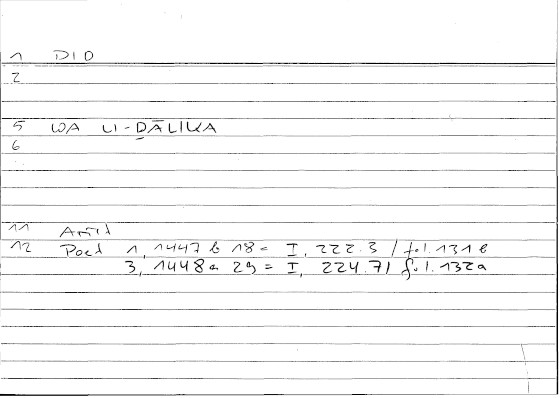 1 DID
2
5 WA LI-ḎĀLIKA
6
11 Arist
12 Poet 1, 1447 b 18 = I, 222.3 / fol. 131 b
3, 1448 a 29 = I, 224.7 / fol. 132a